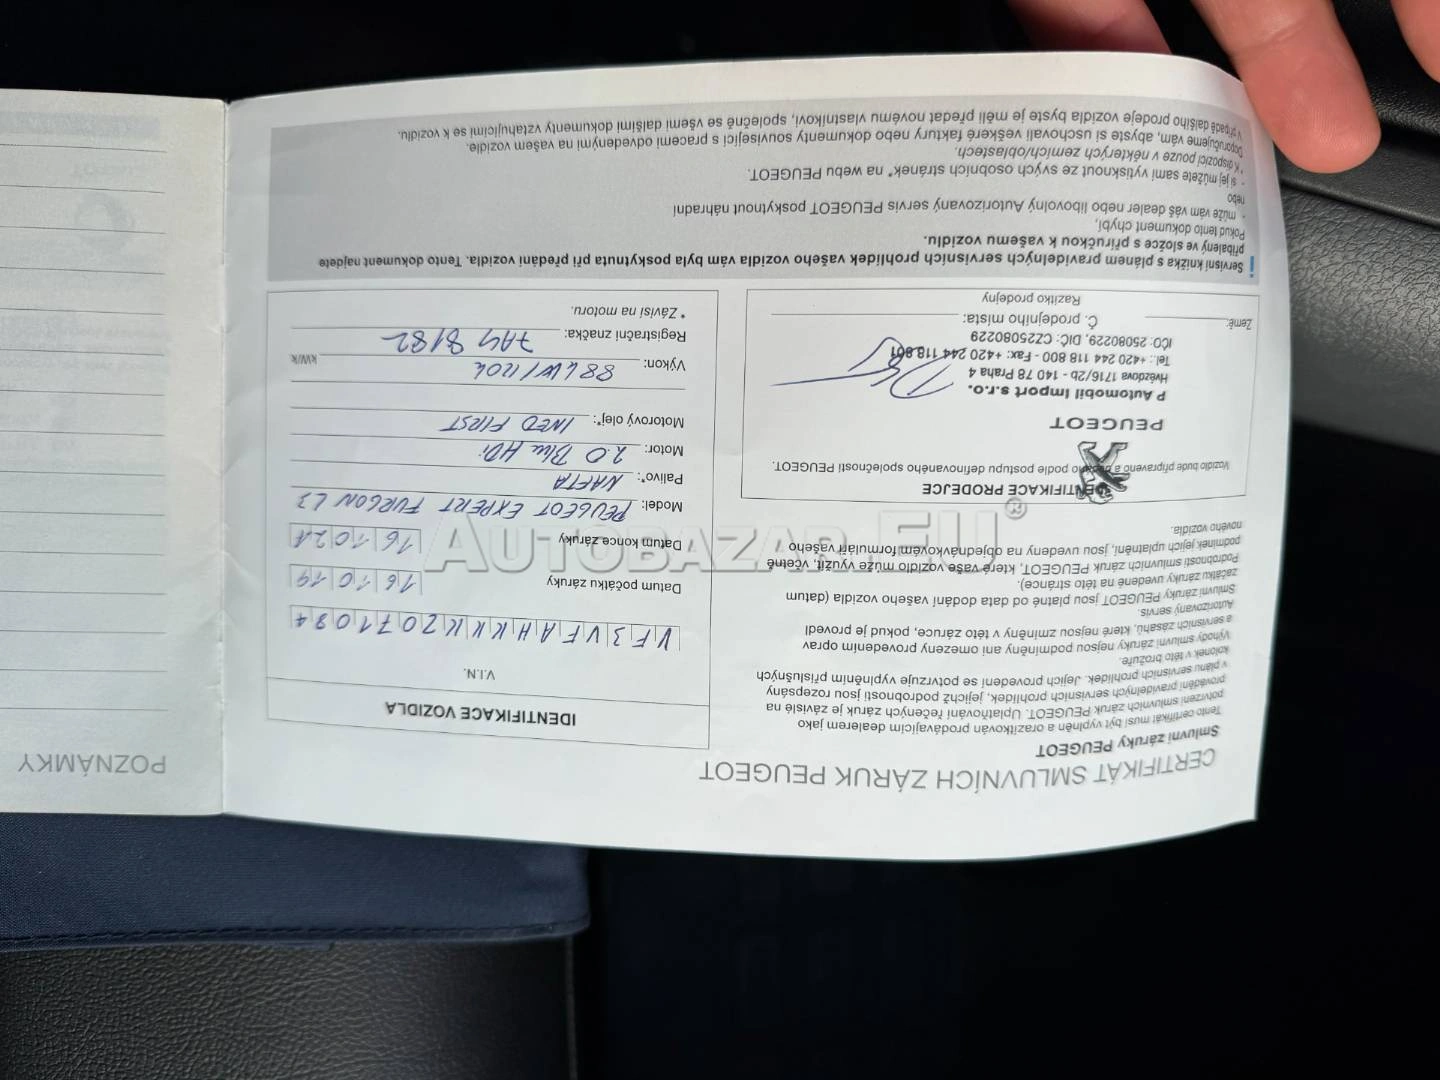 CERTIFIKÁT SMLUVNÍCH ZÁRUK PEUGEOT
Smluvní záruky PEUGEOT
Tento certifikát musí být vyplněn a orazítkován prodávajícím dealerem jako
potvrzení smluvních záruk PEUGEOT. Uplatňování řečených záruk je závislé na
provádění pravidelných servisních prohlídek, jejichž podrobnosti jsou rozepsány
v plánu servisních prohlídek. Jejich provedení se potvrzuje vyplněním příslušných
kolonek v této brožuře.
Výhody smluvní záruky nejsou podmíněny ani omezeny provedením oprav
a servisních zásahů, které nejsou zmíněny v této záruce, pokud je provedl
Autorizovaný servis.
Smluvní záruky PEUGEOT jsou platné od data dodání vašeho vozidla (datum
začátku záruky uvedené na této stránce).
Podrobnosti smluvních záruk PEUGEOT, které vaše vozidlo může využít, včetně
podmínek jejich uplatnění, jsou uvedeny na objednávkovém formuláři vašeho
nového vozidla.
IDENTIFIKACE PRODEJCE
Vozidlo bude připraveno a dodáno podle postupu definovaného společností PEUGEOT.
PEUGEOT
P Automobil Import s.r.o.
Hvězdova 1716/2b - 140 78 Praha 4
Tel.: +420 244 118 800 - Fax: +420 244 118 801
IČO: 25080229, DIČ: CZ25080229
Země:
Č. prodejního místa:
Razítko prodejny
IDENTIFIKACE VOZIDLA
V.I.N.
VF3VFAHKKKZ071094
Datum počátku záruky
16 10 19
Datum konce záruky
16 10 21
Model: PEUGEOT EXPERT FURGON L3
Palivo*: NAFTA
Motor: 2.0 Blue HDi
Motorový olej*: INEO FIRST
Výkon: 88 kW/120k kW/k
Registrační značka: 7AY 8182
* Závisí na motoru.
i
Servisní knížka s plánem pravidelných servisních prohlídek vašeho vozidla vám byla poskytnuta při předání vozidla. Tento dokument najdete
přibalený ve složce s příručkou k vašemu vozidlu.
Pokud tento dokument chybí,
- může vám váš dealer nebo libovolný Autorizovaný servis PEUGEOT poskytnout náhradní
nebo
- si jej můžete sami vytisknout ze svých osobních stránek* na webu PEUGEOT.
* K dispozici pouze v některých zemích/oblastech.
Doporučujeme vám, abyste si uschovali veškeré faktury nebo dokumenty související s pracemi odvedenými na vašem vozidle.
V případě dalšího prodeje vozidla byste je měli předat novému vlastníkovi, společně se všemi dalšími dokumenty vztahujícími se k vozidlu.
POZNÁMKY
AUTOBAZAR.EU®